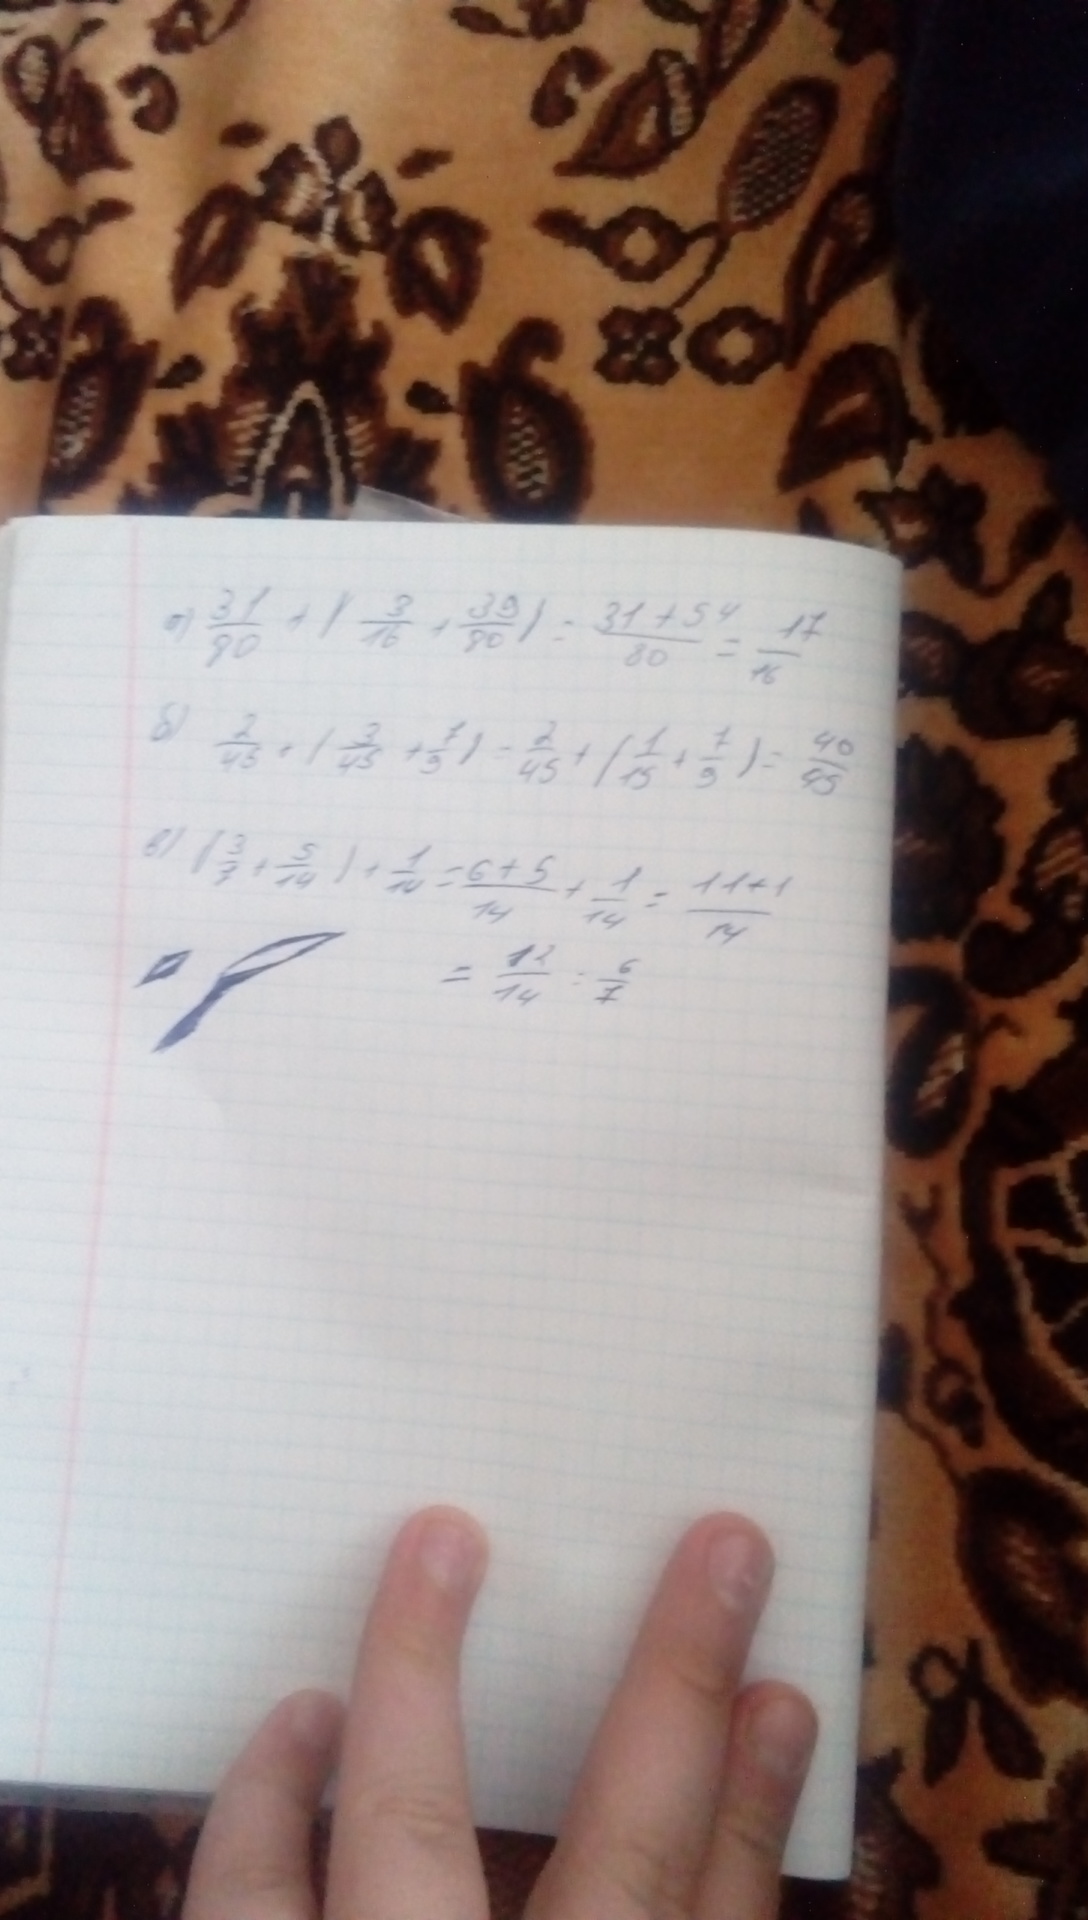 а) 31/80 + (3/16 + 39/80) = 31+54/80 = 17/16
б) 2/45 + (3/45 + 7/9) = 2/45 + (1/15 + 7/9) = 40/45
в) (3/7 + 5/14) + 1/14 = 6+5/14 + 1/14 = 11+1/14
= 12/14 = 6/7